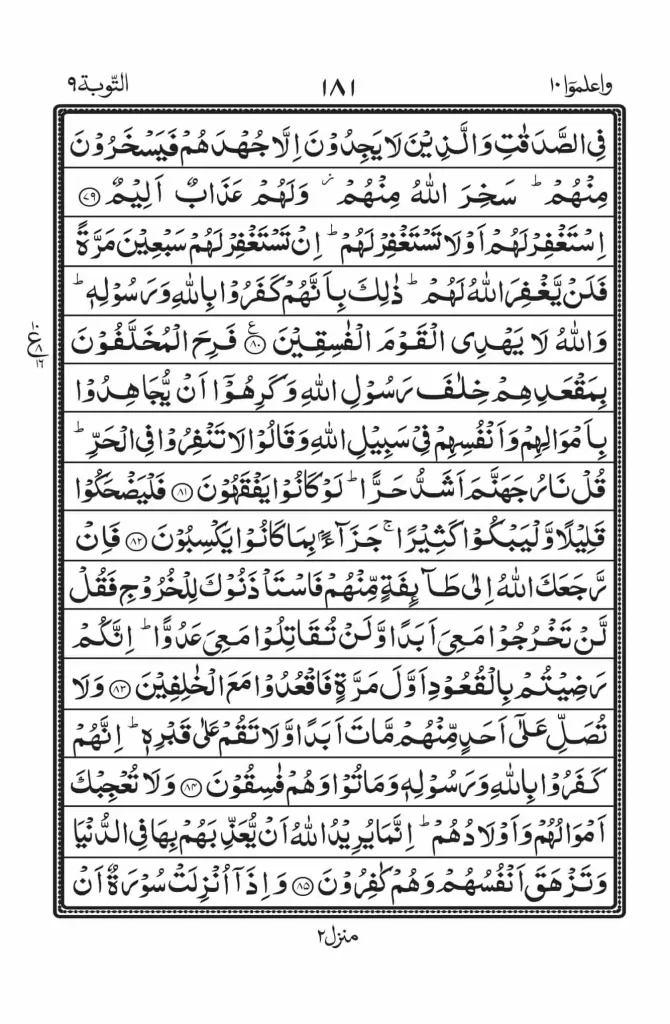 واعلموٓا ١٠ ١٨١ التّوبة ٩
فِى الصَّدَقٰتِ وَالَّذِيۡنَ لَا يَجِدُوۡنَ اِلَّا جُهۡدَهُمۡ فَيَسۡخَرُوۡنَ
مِنۡهُمۡ ؕ سَخِرَ اللّٰهُ مِنۡهُمۡ ۫ وَلَهُمۡ عَذَابٌ اَلِيۡمٌ ﴿٧٩﴾
اِسۡتَغۡفِرۡلَهُمۡ اَوۡلَا تَسۡتَغۡفِرۡلَهُمۡ ؕ اِنۡ تَسۡتَغۡفِرۡلَهُمۡ سَبۡعِيۡنَ مَرَّةً
فَلَنۡ يَّغۡفِرَ اللّٰهُ لَهُمۡ ؕ ذٰلِكَ بِاَنَّهُمۡ كَفَرُوۡا بِاللّٰهِ وَرَسُوۡلِهٖ ؕ
وَاللّٰهُ لَا يَهۡدِى الۡقَوۡمَ الۡفٰسِقِيۡنَ ﴿٨٠﴾ ع فَرِحَ الۡمُخَلَّفُوۡنَ
١٠ ع ٨ ١٦
بِمَقۡعَدِهِمۡ خِلٰفَ رَسُوۡلِ اللّٰهِ وَكَرِهُوۡۤا اَنۡ يُّجَاهِدُوۡا
بِاَمۡوَالِهِمۡ وَاَنۡفُسِهِمۡ فِىۡ سَبِيۡلِ اللّٰهِ وَقَالُوۡا لَا تَنۡفِرُوۡا فِى الۡحَرِّ ؕ
قُلۡ نَارُ جَهَنَّمَ اَشَدُّ حَرًّا ؕ لَوۡ كَانُوۡا يَفۡقَهُوۡنَ ﴿٨١﴾ فَلۡيَضۡحَكُوۡا
قَلِيۡلًا وَّلۡيَبۡكُوۡا كَثِيۡرًا ۚ جَزَآءًۢ بِمَا كَانُوۡا يَكۡسِبُوۡنَ ﴿٨٢﴾ فَاِنۡ
رَّجَعَكَ اللّٰهُ اِلٰى طَآٮِٕفَةٍ مِّنۡهُمۡ فَاسۡتَاۡذَنُوۡكَ لِلۡخُرُوۡجِ فَقُلۡ
لَّنۡ تَخۡرُجُوۡا مَعِىَ اَبَدًا وَّلَنۡ تُقَاتِلُوۡا مَعِىَ عَدُوًّا ؕ اِنَّكُمۡ
رَضِيۡتُمۡ بِالۡقُعُوۡدِ اَوَّلَ مَرَّةٍ فَاقۡعُدُوۡا مَعَ الۡخٰلِفِيۡنَ ﴿٨٣﴾ وَلَا
تُصَلِّ عَلٰٓى اَحَدٍ مِّنۡهُمۡ مَّاتَ اَبَدًا وَّلَا تَقُمۡ عَلٰى قَبۡرِهٖ ؕ اِنَّهُمۡ
كَفَرُوۡا بِاللّٰهِ وَرَسُوۡلِهٖ وَمَاتُوۡا وَهُمۡ فٰسِقُوۡنَ ﴿٨٤﴾ وَلَا تُعۡجِبۡكَ
اَمۡوَالُهُمۡ وَاَوۡلَادُهُمۡ ؕ اِنَّمَا يُرِيۡدُ اللّٰهُ اَنۡ يُّعَذِّبَهُمۡ بِهَا فِى الدُّنۡيَا
وَتَزۡهَقَ اَنۡفُسُهُمۡ وَهُمۡ كٰفِرُوۡنَ ﴿٨٥﴾ وَاِذَاۤ اُنۡزِلَتۡ سُوۡرَةٌ اَنۡ
منزل ٢